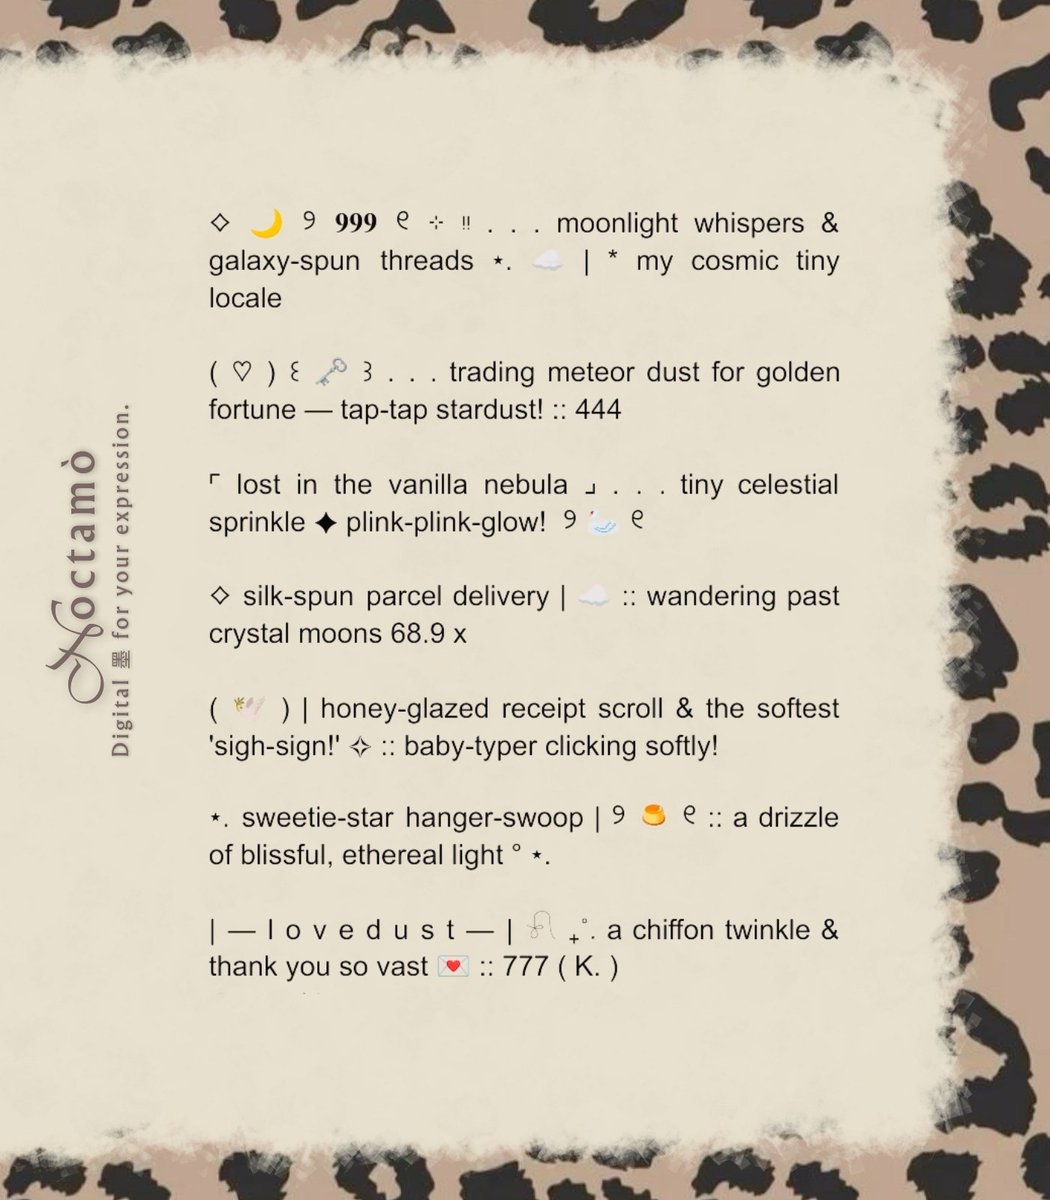 ◇ 🌙 ୨ 𝟗𝟗𝟗 ୧ ⊹ ‼ . . . moonlight whispers &
galaxy-spun threads ⋆. ☁️ | * my cosmic tiny
locale
( ♡ ) ꒰ 🗝️ ꒱ . . . trading meteor dust for golden
fortune — tap-tap stardust! :: 444
⌜ lost in the vanilla nebula ⌟ . . . tiny celestial
sprinkle ✦ plink-plink-glow! ୨ 🦢 ୧
◇ silk-spun parcel delivery | ☁️ :: wandering past
crystal moons 68.9 x
( 🪽 ) | honey-glazed receipt scroll & the softest
'sigh-sign!' ✧ :: baby-typer clicking softly!
⋆. sweetie-star hanger-swoop | ୨ 🍮 ୧ :: a drizzle
of blissful, ethereal light ° ⋆.
| — l o v e d u s t — | 𓍯 ₊˚. a chiffon twinkle &
thank you so vast 💌 :: 777 ( K. )
Noctamò
Digital 墨 for your expression.